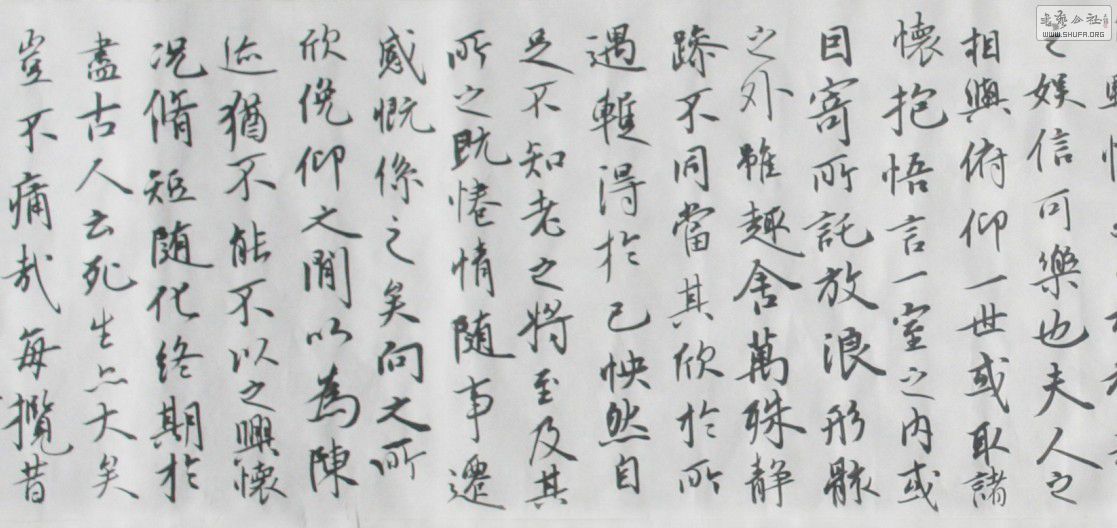 之娱信可樂也夫人之
相與俯仰一世或取諸
懷抱悟言一室之内或
因寄所託放浪形骸
之外雖趣舍萬殊静
躁不同當其欣於所
遇蹔得於己怏然自
足不知老之將至及其
所之既惓情随事遷
感慨係之矣向之所
欣俛仰之閒以為陳
迹猶不能不以之興懷
况脩短随化终期於
盡古人云死生亦大矣
豈不痛哉每攬昔
書藝公社
WWW.SHUFA.ORG